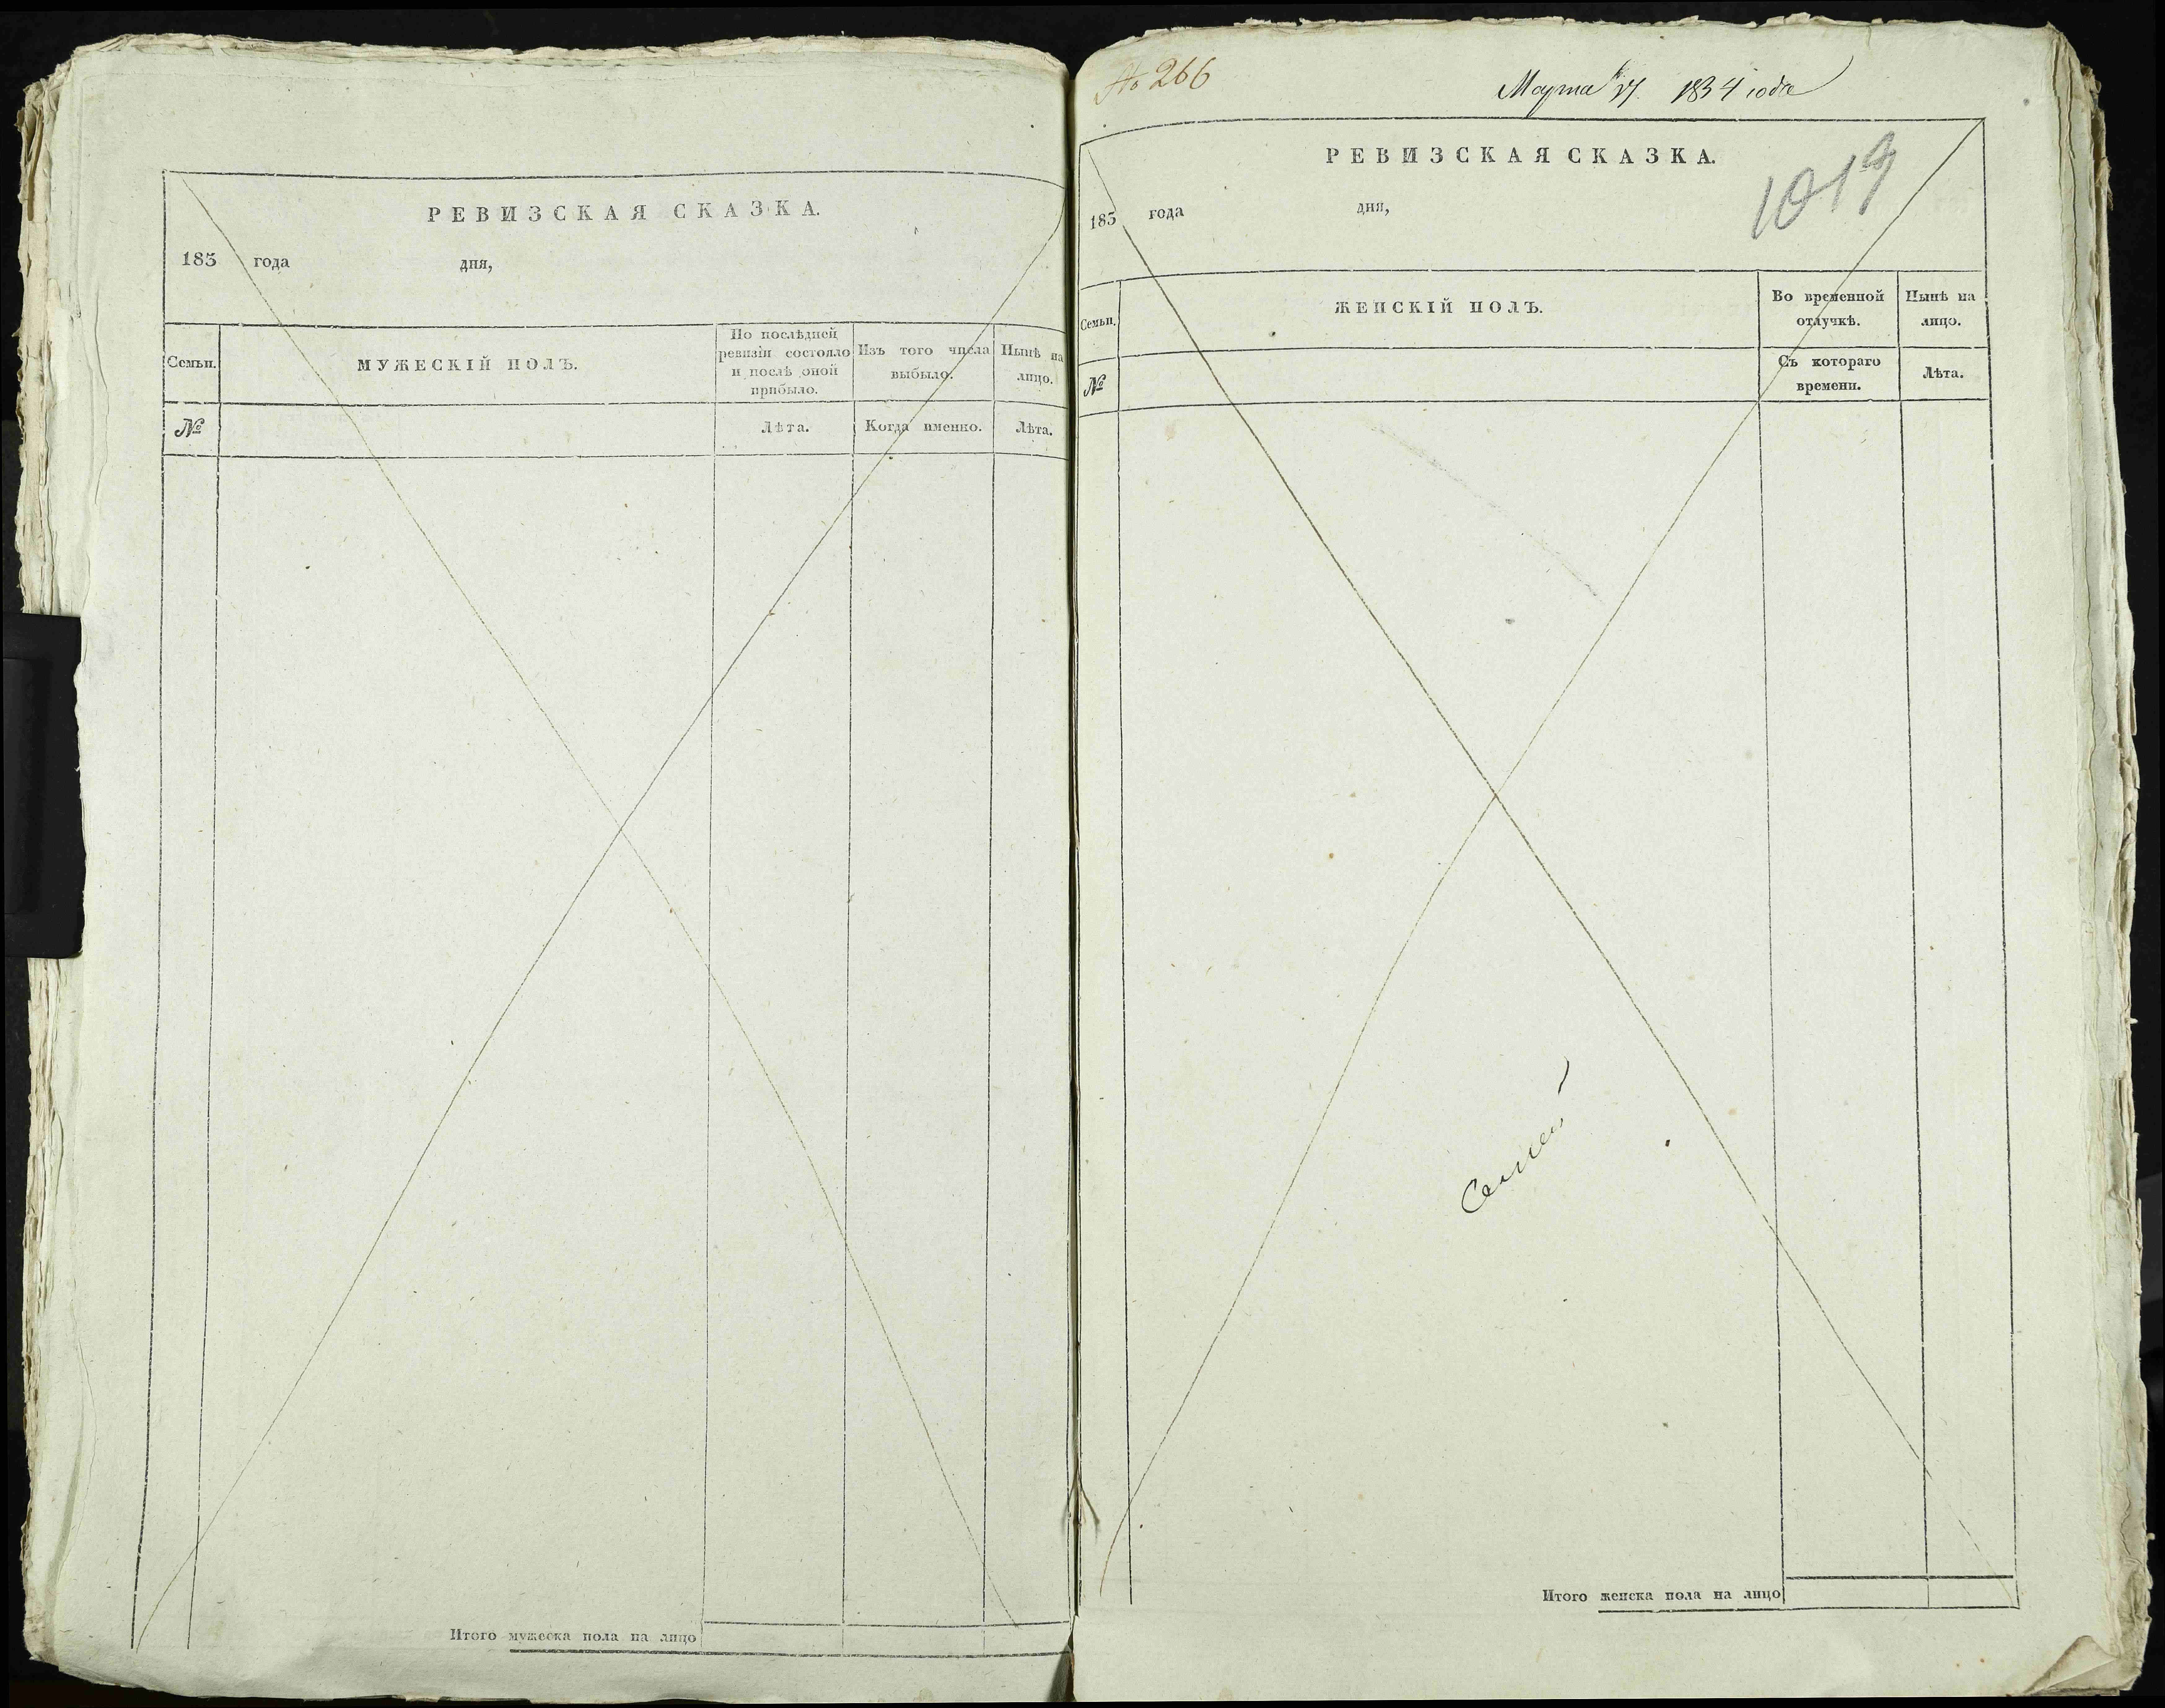 РЕВИЗСКАЯ СКАЗКА.
183 года дня,
Семьи.
МУЖЕСКІЙ ПОЛЪ.
По послѣдней ревизіи состояло и послѣ оной прибыло.
Изъ того числа выбыло.
Нынѣ на лицо.
№
Лѣта.
Когда именно.
Лѣта.
Итого мужеска пола на лицо
№ 266
Марта 1834 года
РЕВИЗСКАЯ СКАЗКА.
183 года дня,
Семьи.
ЖЕНСКІЙ ПОЛЪ.
Во временной отлучкѣ.
Нынѣ на лицо.
№
Съ котораго времени.
Лѣта.
Итого женска пола на лицо